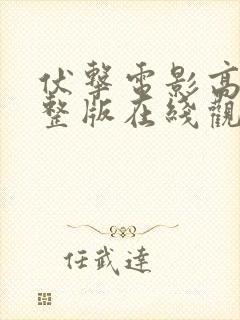 伏擊電影高
整版在綫觀
任武達